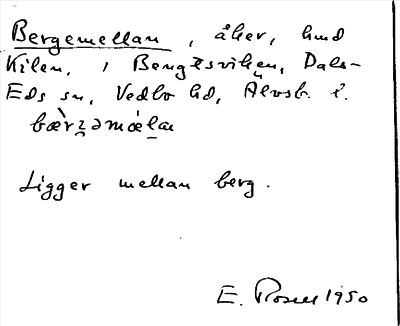 Bergemellan, åker, hmd
Kilen, i Bengtsviken, Dals-
Eds sn, Vedbo hd, Älvsb. l.
bæ̀rʒəmǽlan
Ligger mellan berg.
E. Rosell 1950